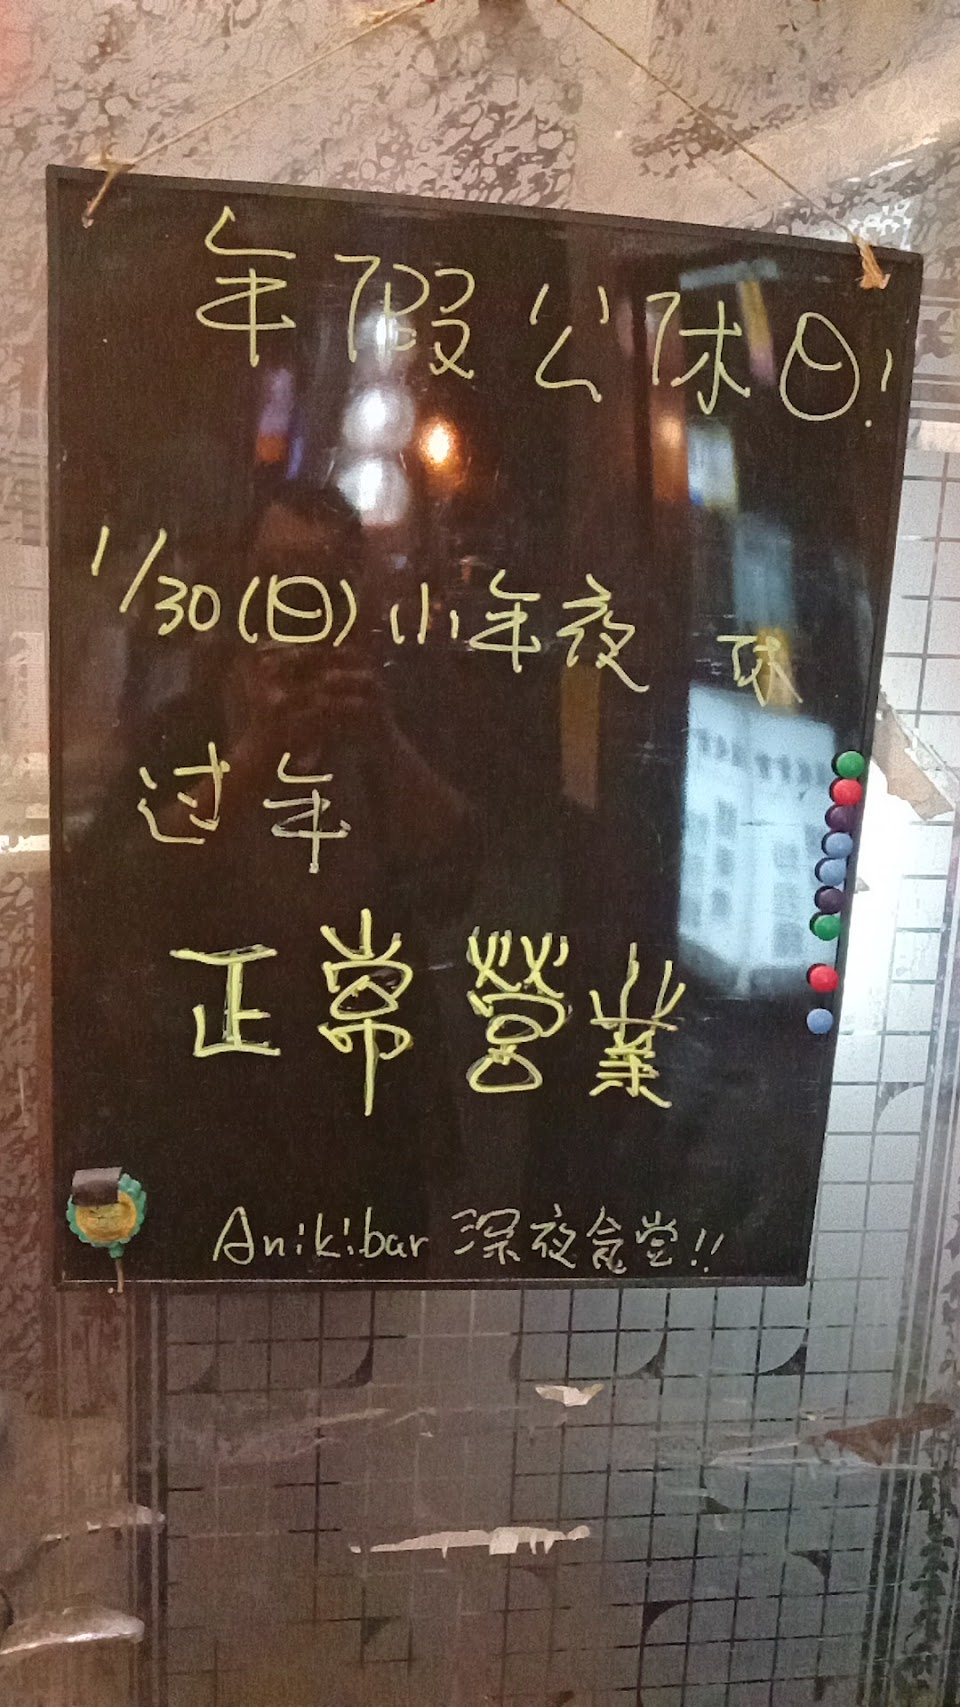 年假公休日!
1/30(日)小年夜 休
过年
正常營業
Anikibar 深夜食堂!!